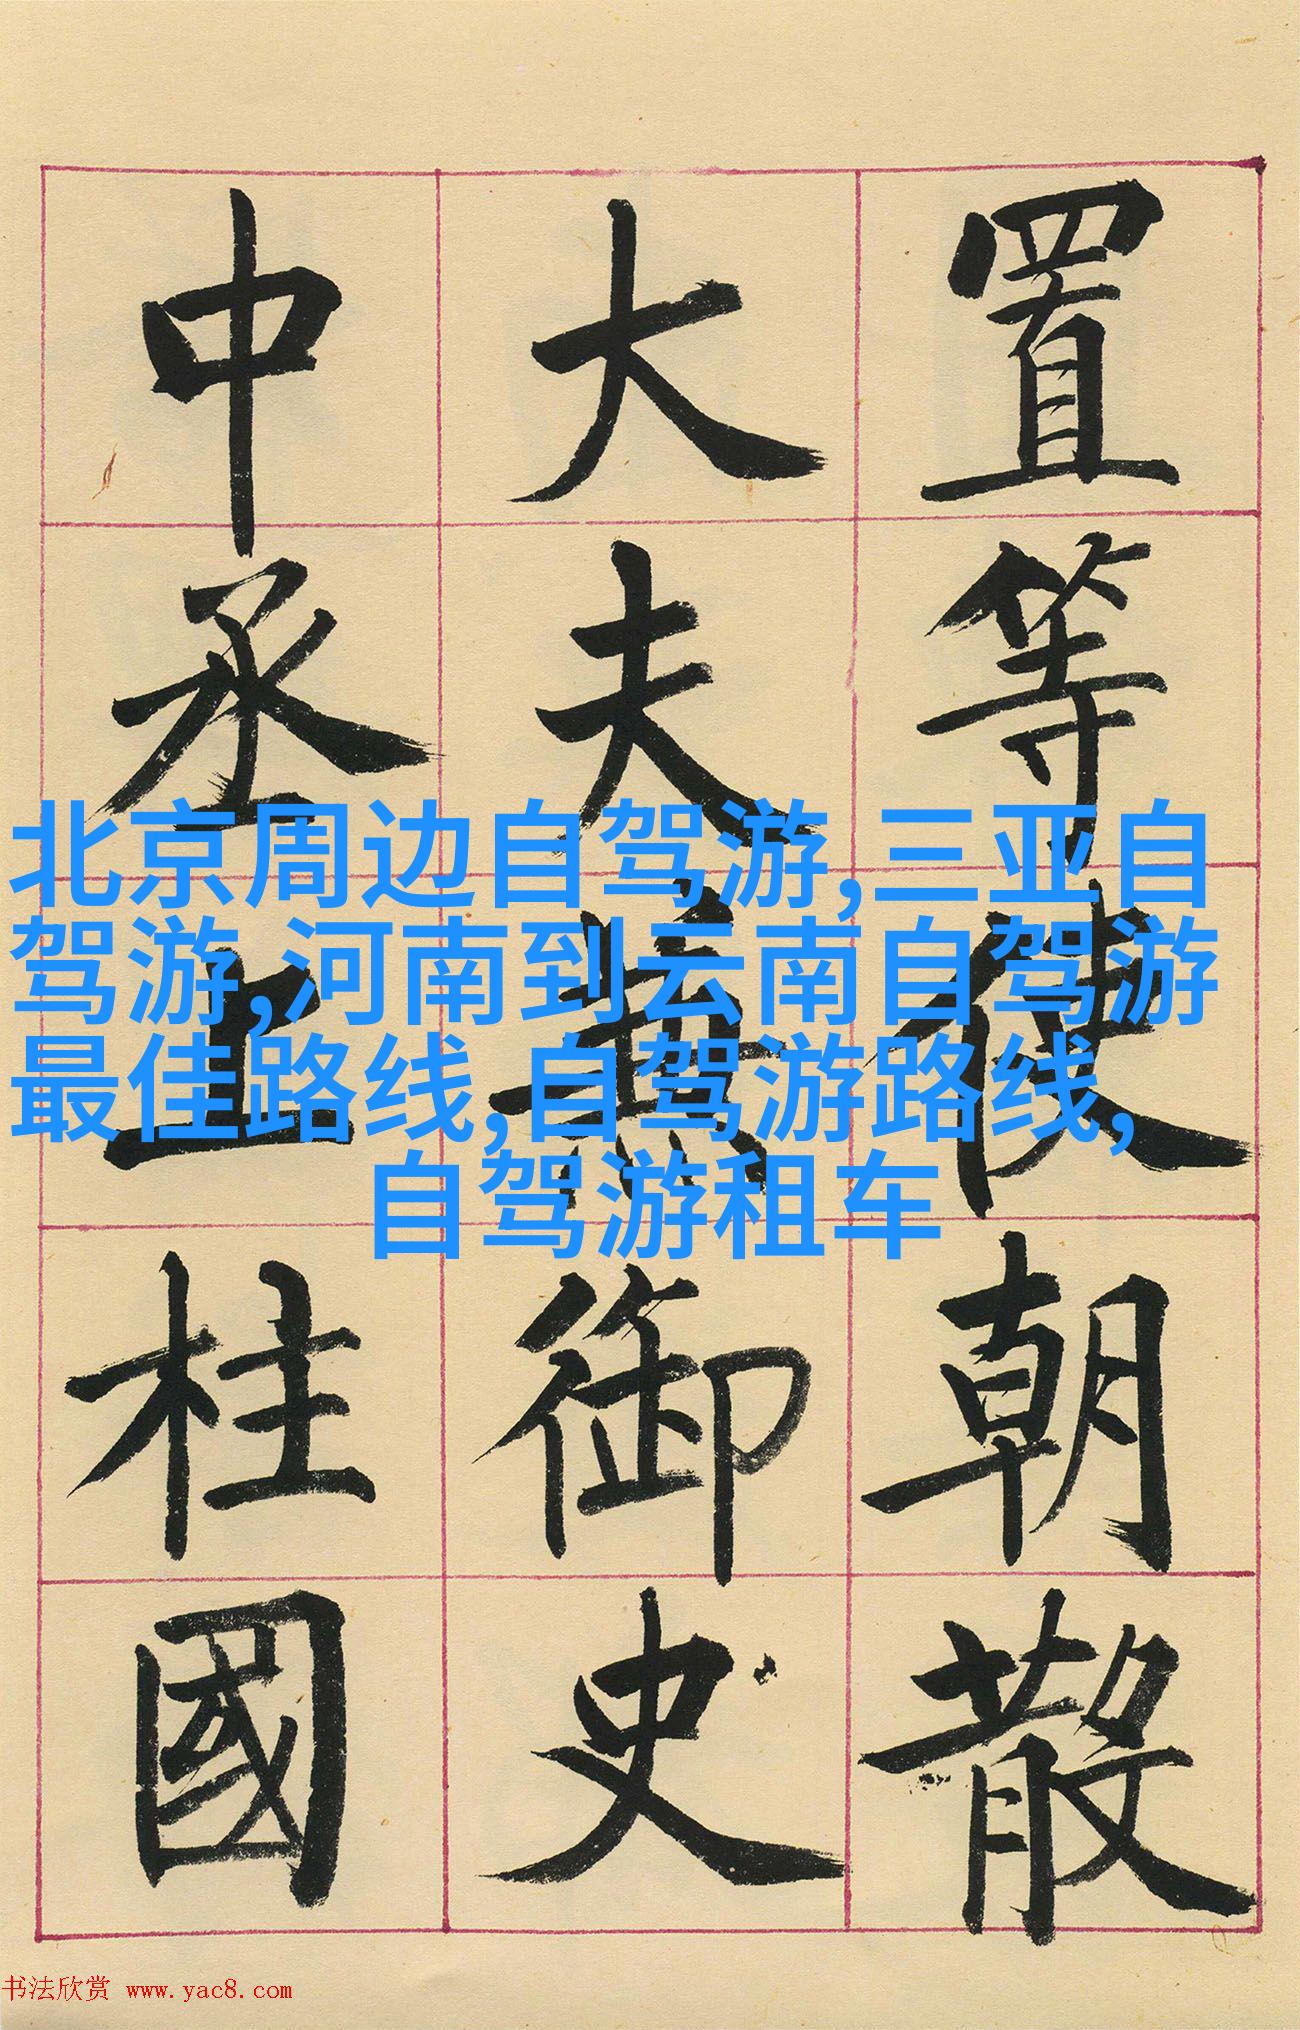 置等使朝散
大夫兼御史
中丞上柱國
北京周边自驾游,三亚自
驾游,河南到云南自驾游
最佳路线,自驾游路线,
自驾游租车
书法欣赏 www.yac8.com